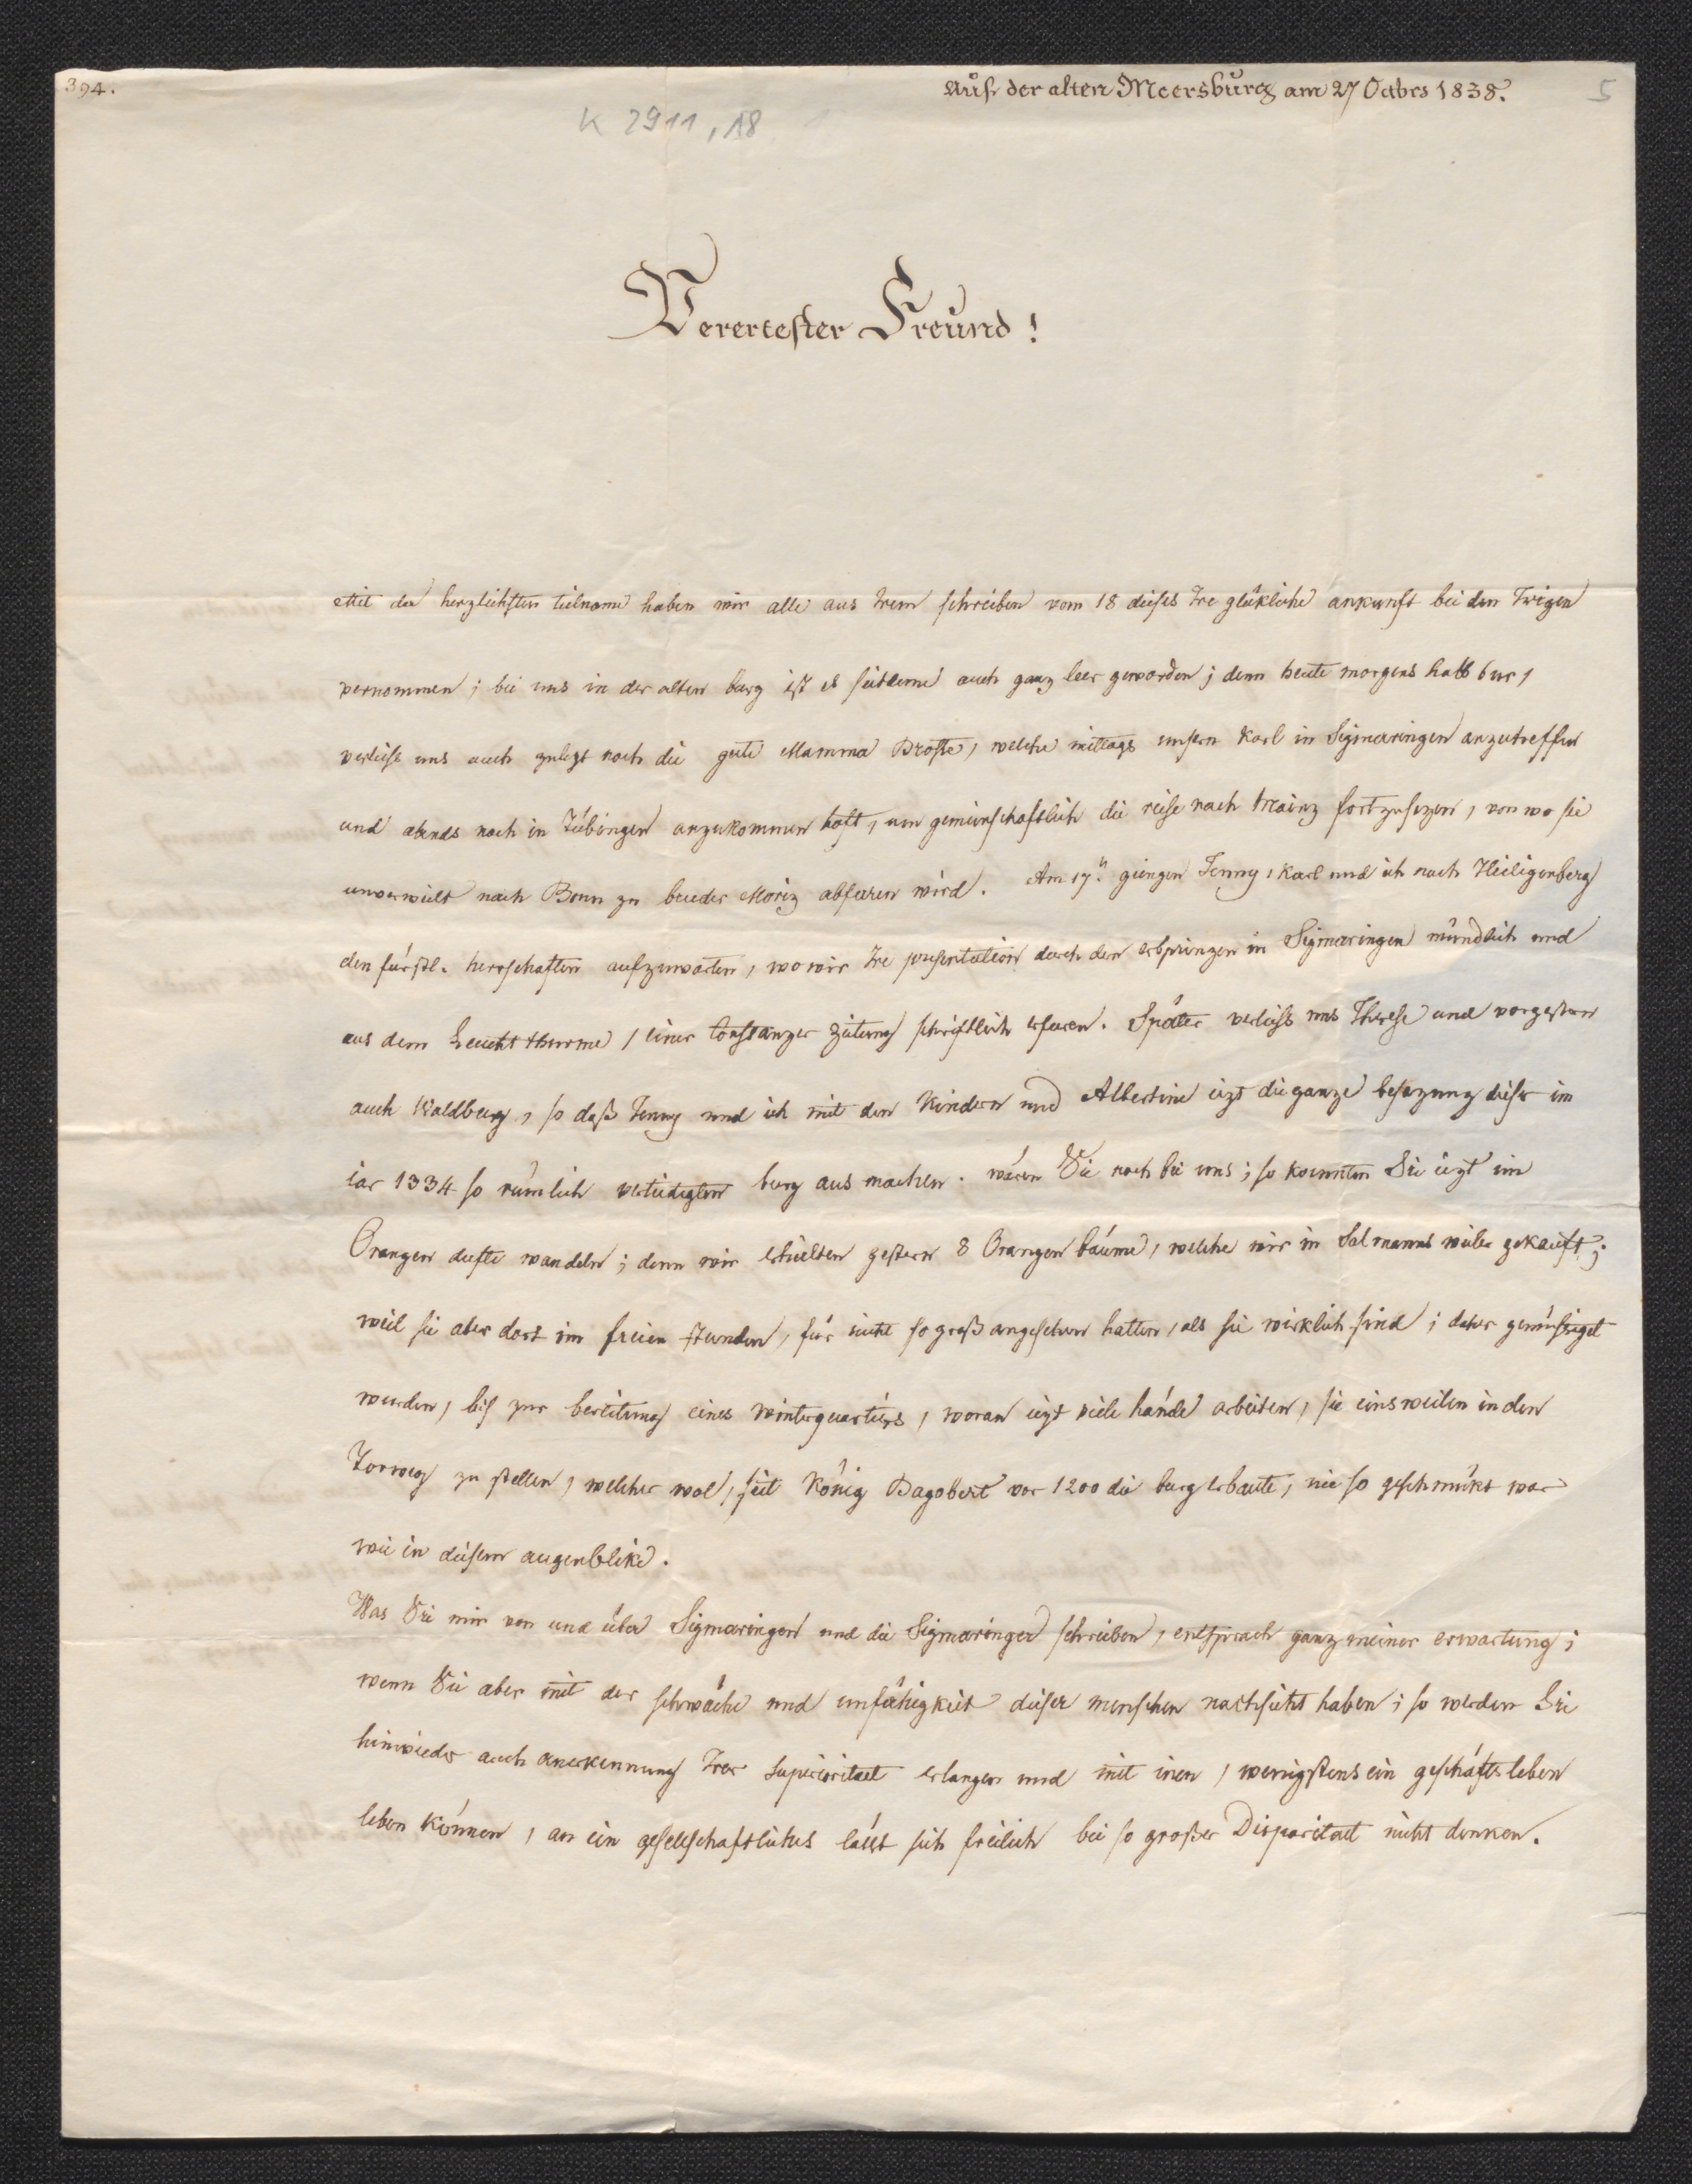 394.
Auſs der alten Meersburg am 27 Octbrs 1838.
5
K 2911, 18
Verertester Freund!
Mit der herzlichsten teilname haben wir alle aus Irem schreiben vom 18 dieses Ire glükliche ankunft bei den Irigen
vernommen; bei uns in der alten burg ist es seitdeme auch ganz leer geworden; denn heute morgens halb 6 ur,
verliess uns auch zulezt noch die gute Mamma Droste, welche mittags unsern Karl in Sigmaringen anzutreffen
und abends noch in Tübingen anzukommen hoft, um gemeinschaftlich die reise nach Mainz fortzusezen, von wo sie
unverwielt nach Bonn zu bruder Moriz abfaren wird. Am 17ⁿ giengen Jenny, Karl und ich nach Heiligenberg
den fürstl. herrschaften aufzuwarten, wo wir Ire presentation durch den erbprinzen in Sigmaringen mündlich und
aus dem Leuchtthurme, einer Constanzer zeitung schriftlich erfuren. Später verliess uns Therese und vorgestern
auch Waldburg, so daß Jenny und ich mit den Kindern und Albertine iezt die ganze besazung dieser im
iar 1334 so rümlich verteidigten burg aus machen. wären Sie noch bei uns; so koennten Sie iezt im
Orangen dufte wandeln; denn wir erhielten gestern 8 Orangen bäume, welche wir in Salmanns weiler gekauft;
weil sie aber dort im freien stunden, für nicht so groß angesehen hatten, als sie wirklich sind; daher gemüssiget
wurden, bis zur bereitung eines winterquartiers, woran iezt viele hände arbeiten, sie einsweilen in den
Torweg zu stellen, welcher wol, seit König Dagobert vor 1200 die burg erbaute, nie so geschmükt war
wie in diesem augenblike.
Was Sie mir von und über Sigmaringen und die Sigmaringer schreiben, entsprach ganz meiner erwartung;
wenn Sie aber mit der schwäche und unfähigkeit dieser menschen nachsicht haben; so werden Sie
hinwieder auch anerkennung Irer Superioritaet erlangen und mit inen, wenigstens ein geschäfts leben
leben können, an ein gesellschaftliches lässt sich freilich bei so großer Disparitaet nicht denken.